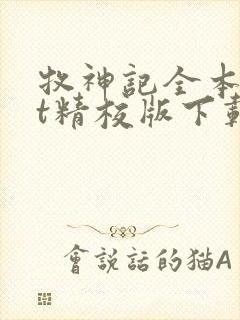 牧神記全本
t精校版下載
會說話的猫A